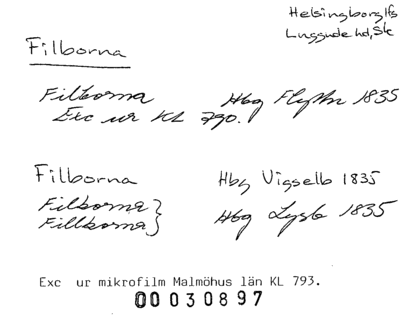 Helsingborg lfs
Luggude hd, Sk
Filborna
Filborna Hbg Flyttn 1835
Exc ur KL 790.
Filborna Hbg Vigselb 1835
Filborna }
Fillborna } Hbg Lysb 1835
Exc ur mikrofilm Malmöhus län KL 793.
00030897